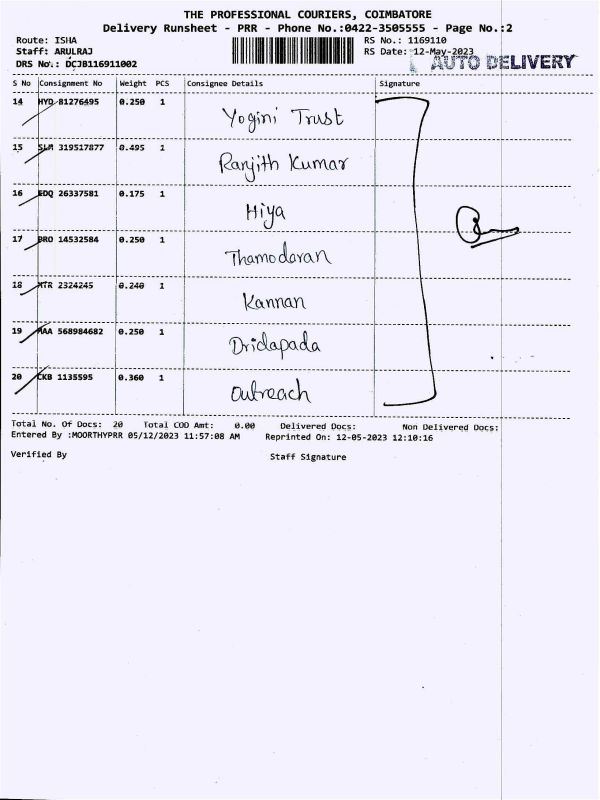 THE PROFESSIONAL COURIERS, COIMBATORE
Delivery Runsheet - PRR - Phone No.:0422-3505555 - Page No.:2
Route: ISHA RS No.: 1169110
Staff: ARULRAJ RS Date: 12-May-2023
DRS No.: DCJB116911002 AUTO DELIVERY
S No Consignment No Weight PCS Consignee Details Signature
14 HYD 81276495 0.250 1 Yogini Trust
15 SLM 319517877 0.495 1 Ranjith Kumar
16 EDQ 26337581 0.175 1 Hiya
17 BRO 14532584 0.250 1 Thamodaran
18 MTR 2324245 0.240 1 Kannan
19 MAA 568984682 0.250 1 Dridapada
20 CKB 1135595 0.360 1 Outreach
Total No. Of Docs: 20 Total COD Amt: 0.00 Delivered Docs: Non Delivered Docs:
Entered By :MOORTHYPRR 05/12/2023 11:57:08 AM Reprinted On: 12-05-2023 12:10:16
Verified By Staff Signature